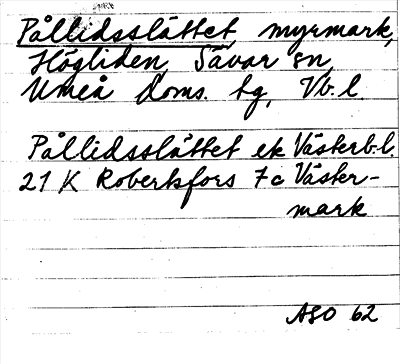 Pållidsslåttet, myrmark,
Högliden, Sävar sn,
Umeå doms. tg, Vb.l.
Pållidsslåttet ek Västerb.l.
21 K Robertsfors 7c Väster-
mark
ASO 62